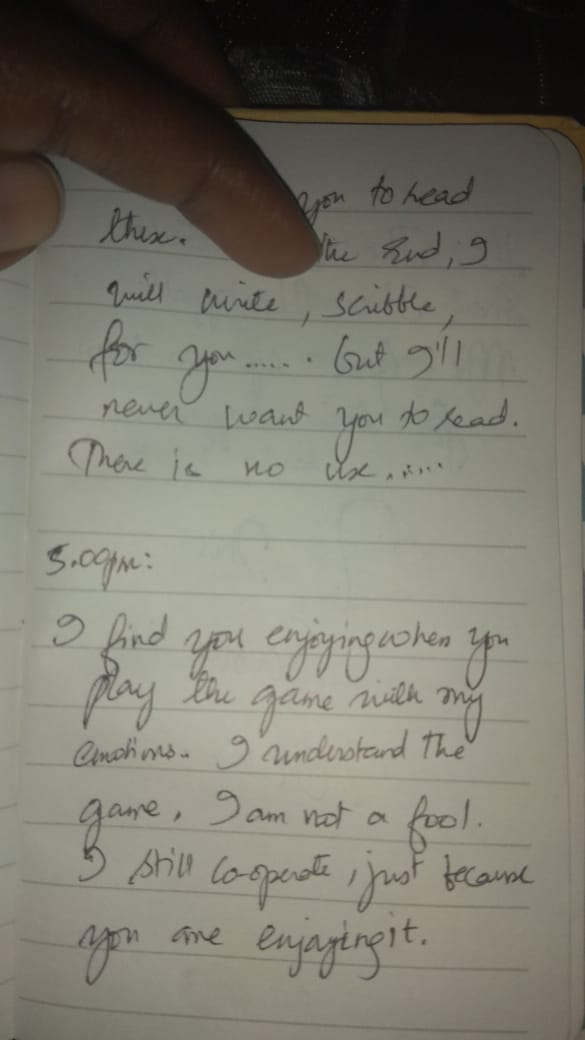 you to read
these.
the end, I
will write, scribble,
for you...... . but I'll
never want you to read.
There is no use......
5.09pm:
I find you enjoying when you
play the game with my
emotions.. I understand the
game, I am not a fool.
I still co-operate, just because
you are enjoying it.